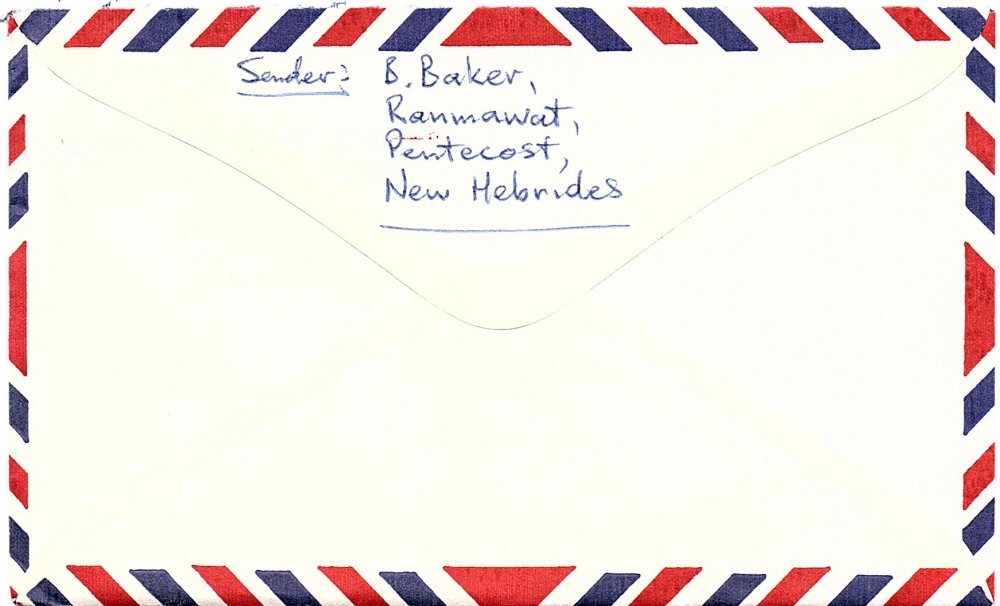 Sender: B. Baker,
Ranmawat,
Pentecost,
New Hebrides